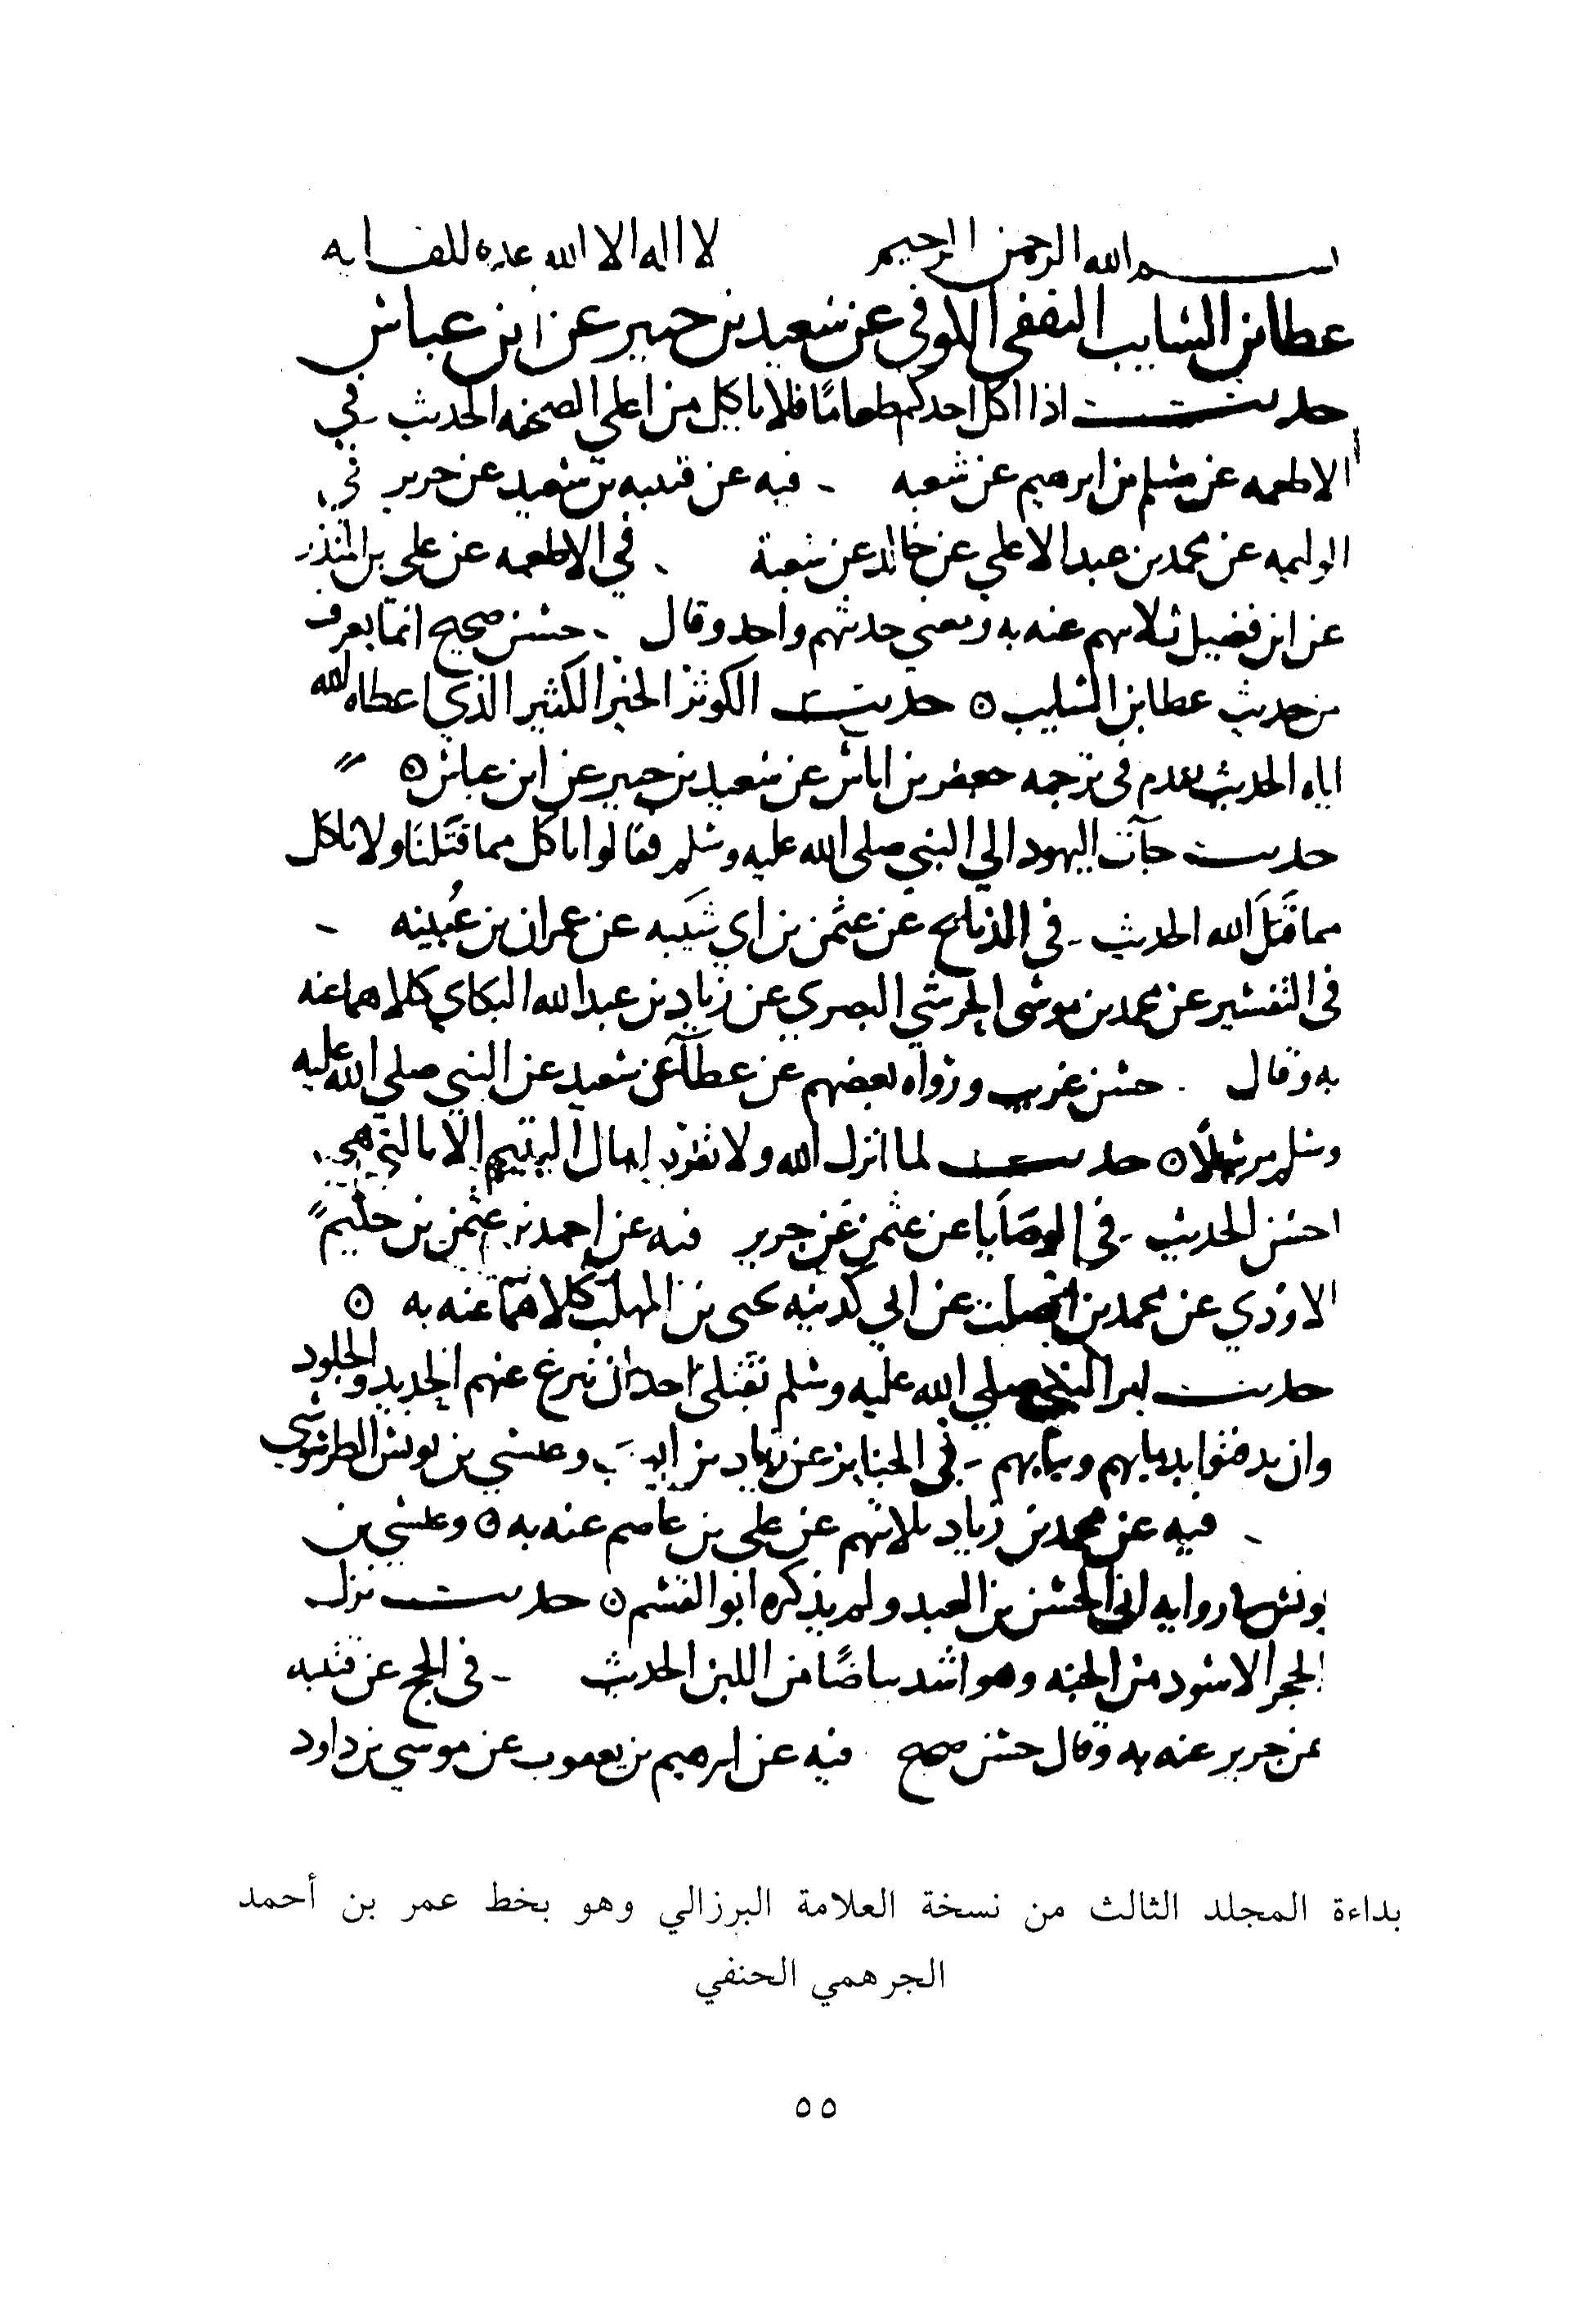 بسم الله الرحمن الرحيم لا اله الا الله عدة للقايه
عطا بن السايب الثقفي الكوفي عن سعيد بن جبير عن ابن عباس
حديث اذا اكل احدكم طعامًا فلا ياكل من اعلى الصحفه الحديث في
الاطعمه عن مسلم بن ابرهيم عن شعبه فيه عن قتيبه بن سعيد عن جرير في
الوليمه عن محمد بن عبد الاعلي عن خالد عن شعبة في الاطعمه عن علي بن المنذر
عن ابن فضيل ثلاثهم عنه به ومعني حديثهم واحد وقال حسن صحيح انما يعرف
من حديث عطا بن السايب ه حديث الكوثر الخير الكثير الذي اعطاه الله
اياه الحديث تقدم في ترجمه جعفر بن اياس عن سعيد بن جبير عن ابن عباس ه
حديث جآت اليهود الي النبي صلى الله عليه وسلم فقالوا ناكل مما قَتَلنَا ولا ناكل
مما قَتَلَ الله الحديث في الذبايح عن عثمن بن ابي شَيبه عن عمران بن عُيينه
في التفسير عن محمد بن موسى الحرشي البصري عن زياد بن عبد الله البكاي كلاهما عنه
به وقال حسن غريب ورواه بعضهم عن عطآ عن سعيد عن النبي صلي الله عليه
وسلم مرسلًا ه حديث لما انزل الله ولا تقربوا مال اليتيم الا بالتي هي
احسن الحديث في الوصَايا عن عثمن عن جرير فيه عن احمد بن عثمن بن حكيم
الاودي عن محمد بن الصلت عن ابي كدينه يحيى بن المهلب كلاهما عنه به ه
حديث امر النبي صلي الله عليه وسلم بقتلى احد ان ينزع عنهم الحديد والجلود
وان يدفنوا بدمايهم وثيابهم في الجنايز عن زياد بن ايوب وعيسي بن يونس الطرسوسي
فيه عن محمد بن زياد ثلاثهم عن علي بن عاصم عنه به ه وعيسي بن
يونس في روايه ابي الحسن بن العبد ولم يذكره ابو القسم ه حديث نزل
الحجر الاسود من الجنه وهو اشد بياضًا من اللبن الحديث في الحج عن قتيبه
عن جرير عنه به وقال حسن صحيح فيه عن ابرهيم بن يعقوب عن موسي بن داود
بداءة المجلد الثالث من نسخة العلامة البرزالي وهو بخط عمر بن أحمد
الجرهمي الحنفي
٥٥